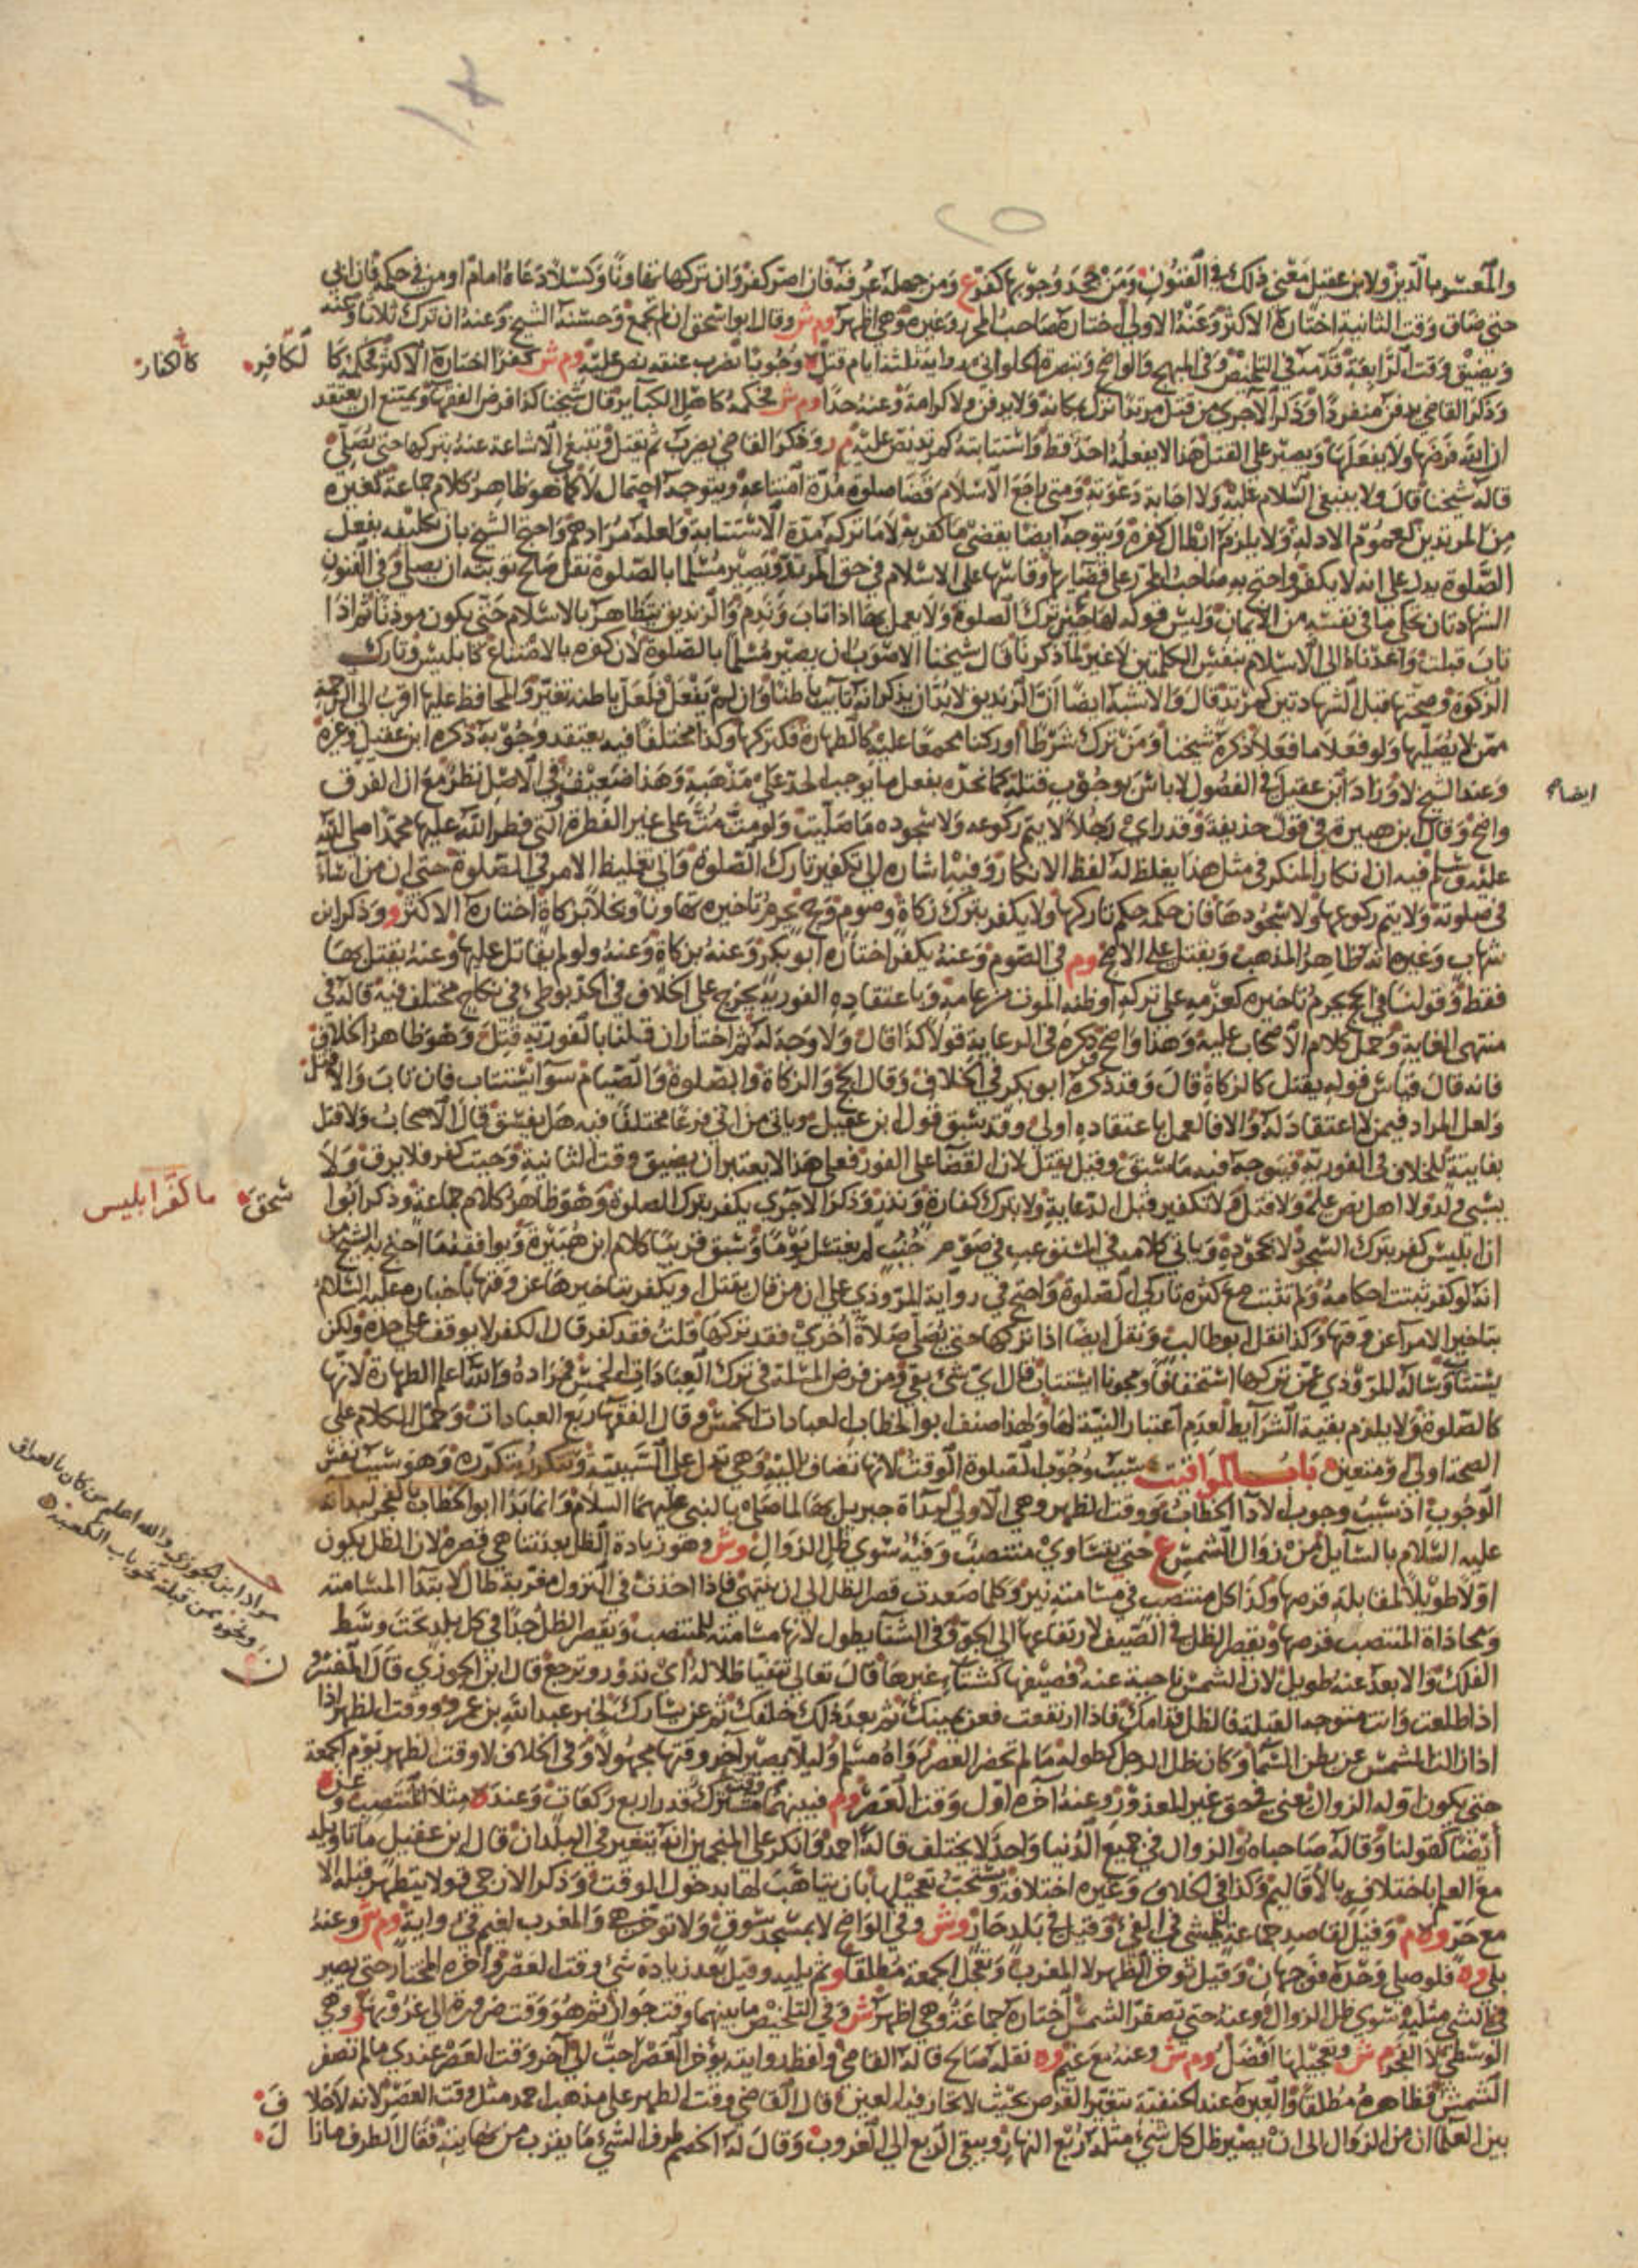 والمعسر بالدين ولابن عقيل معنى ذلك في الفنون ومن جحد وجوبها كفر ع ومن جهله عرفه فان اصر كفر وان تركها تهاونا وكسلا دعاه امام او من في حكمه فان ابى
حتى ضاق وقت الثانية اختاره الاكثر وعنه الاولى اختاره صاحب المحرر وغيره وهي اظهر وم ش وقال ابو اسحق ان لم يجمع وحسنه الشيخ وعنه ان ترك ثلاثا وعنه
ويضيق وقت الرابعة قدمه في التلخيص وفي المبهج والواضح وتبصرة الحلواني رواية ثلثة ايام قتل وجوبا بضرب عنقه نص عليه وم ش كفرا اختاره الاكثر فحكمه كا
لكافر
كالكفار
وذكر القاضي يدفن منفردا وذكر الآجري من قتل مرتدا ترك بمكانه ولا يدفن ولا كرامة وعنه حدا وم ش فحكمه كاهل الكبائر قال شيخنا كذا فرض الفقهاء ويمتنع ان يعتقد
ان الله فرضها ولا يفعلها ويصبر على القتل هذا لا يفعله احد قط واستتابته كمرتد نص عليه م ر وذكر القاضي يضرب ثم يقتل وينبغي الاشاعة عنه بتركها حتى يصلي
قاله شيخنا قال ولا ينبغي السلام عليه ولا اجابة دعوته ومتى راجع الاسلام قضا صلوة مدة امتناعه ويتوجه احتمال لا كما هو ظاهر كلام جماعة كغيره
من المرتدين لعموم الادلة ولا يلزم ابطال كفره ويتوجه ايضا يقضي ما كفر به لا ما تركه مدة الاستتابة ولعله مرادهم واحتج الشيخ بان تكليفه بفعل
الصلوة يدل على انه لا يكفر واحتج به صاحب المحرر على قضايها وقاسها على الاسلام في حق المرتد ويصير مسلما بالصلوة نقل صالح توبته ان يصلي وفي الفنون
الشهادتان تحكي ما في نفسه من الايمان وليس قوله لها حين ترك الصلوة ولا يعمل بها اذا تاب وندم والزنديق يتظاهر بالاسلام حتى يكون موذنا ثم اذا
تاب قبلت واعدناه الى الاسلام بنفس الكلمتين لا غير لما ذكرنا قال شيخنا الاصوب ان يصير مسلما بالصلوة لان كفره بالامتناع كابليس وتارك
الزكوة وصحتها قبل الشهادتين كمرتد قال والاشبه ايضا ان الزنديق لا بد ان يذكر انه تايب باطنا وان لم يفعل فلعل باطنه تغير والمحافظ عليها اقرب الى الرحمة
ممن لا يصليها ولو فعل ما فعل ذكره شيخنا ومن ترك شرطا او ركنا مجمعا عليه كالطهارة فكتركها وكذا مختلفا فيه يعتقد وجوبه ذكره ابن عقيل وغيره
وعند الشيخ لا وزاد ابن عقيل في الفصول لا باس بوجوب قتله كما نحده بفعل ما يوجب الحد على مذهبه وهذا ضعيف وفي الاصل نظر مع ان الفرق
ايضا
واضح وقال ابن هبيرة في قول حذيفة وقد راى رجلا لا يتم ركوعه ولا سجوده ما صليت ولو مت مت على غير الفطرة التي فطر الله عليها محمدا صلى الله
عليه وسلم فيه ان انكار المنكر في مثل هذا يغلظ له لفظ الانكار وفيه اشاره الى تكفير تارك الصلوة والى تغليظ الامر في الصلوة حتى ان من اساء
في صلوته ولا يتم ركوعها ولا سجودها فان حكمه حكم تاركها ولا يكفر بترك زكاة وصوم وحج يحرم تاخيره تهاونا وبخلا بزكاة اختاره الاكثر و وذكر ابن
شهاب وغيره انه ظاهر المذهب ويقتل على الاصح وم في الصوم وعنه يكفر اختاره ابو بكر وعنه بزكاة وعنه ولو لم يقاتل عليها وعنه يقتل بها
فقط وقولنا في الحج يحرم تاخيره كعزمه على تركه او ظنه الموت من عامه وباعتقاده الفورية يخرج على الخلاف في الحد بوطئ في نكاح مختلف فيه قاله في
منتهى الغاية وحمل كلام الاصحاب عليه وهذا واضح ذكره في الرعاية قولا كذا قال ولا وجه له ثم اختار ان قلنا بالفورية قتل وهو ظاهر الخلاف
فانه قال قياس قوله يقتل كالزكاة قال وقد ذكره ابو بكر في الخلاف وقال الحج والزكاة والصلوة والصيام سوا يستتاب فان تاب والا قتل
ولعل المراد فيمن لا اعتقاد له والا فالعمل باعتقاده اولى وقد سبق قول ابن عقيل وياتي من اتى فرعا مختلفا فيه هل يفسق قال الاصحاب ولا قتل
بفايتة للخلاف في الفورية فيتوجه فيه ما سبق وقيل يقتل لان القضا على الفور فعلى هذا لا يعتبر ان يضيق وقت الثانية وحيث كفر فلا يرق ولا
يسبى ولد ولا اهل نص عليه ولا قتل ولا تكفير قبل الدعاية ولا بترك كفارة ونذر وذكر الاجري يكفر بترك الصلوة وهو ظاهر كلام جماعة وذكر ابوا
سحق
ما كفر ابليس
ان ابليس كفر بترك السجود لا بجحوده وياتي كلامه في المستوعب في صوم جنب لم يغتسل يوما وسبق قريبا كلام ابن هبيرة ويوافقه ما احتج به الشيخ من
انه لو كفر ثبتت احكامه ولم تثبت مع كثرة تاركي الصلوة واحتج في رواية المروذي على ان من قال يقتل او يكفر بتاخيرها عن وقتها باخباره عليه السلام
بتاخير الامرآ عن وقتها وكذا نقل ابو طالب ونقل ايضا اذا تركها حتى يصلي صلاة اخرى فقد تركها قلت فقد كفر قال الكفر لا يوقف على حده ولكن
يستتاب وساله المروذي عمن تركها استخفافا ومجونا استتاب قال اي شي بقي ومن فرض المسئلة في ترك العبادات الخمس فمراده والله اعلم الطهارة لانها
كالصلوة ولا يلزم بقية الشرايط لعدم اعتبار النية لها ولهذا صنف ابو الخطاب العبادات الخمس وقال الفقهاء ربع العبادات وحمل الكلام على
الصحة اولى ومتعين باب المواقيت سبب وجوب الصلوة الوقت لانها تضاف اليه وهي تدل على السببية وتتكرر بتكرره وهو سبب نفس
الوجوب اذ سبب وجوب الادآ الخطاب ووقت الظهر وهي الاولى لبدآة جبريل بها لما صلى بالنبي عليهما السلام وانما بدا ابو الخطاب بالفجر لبداته
عليه السلام بالسايل من زوال الشمس ع حتى يتساوي منتصب وفيه سوي ظل الزوال وش وهو زيادة الظل بعد تناهي قصره لان الظل يكون
اولا طويلا لمقابلة قرصها وكذا كل منتصب في مسامتة نير وكلما صعدت قصر الظل الى ان ينتهي فاذا اخذت في النزول مغربة طال لابتدا المسامتة
ومحاذاة المنتصب قرصها ويقصر الظل في الصيف لارتفاعها الى الجو وفي الشتا يطول لانها مسامتة للمنتصب ويقصر الظل جدا في كل بلد تحت وسط
الفلك والابعد عنه طويل لان الشمس ناحية عنه فصيفها كشتا غيرها قال تعالى تتفيا ظلاله اي تدور وترجع قال ابن الجوزي قال المفسرو
ن
مراد ابن الجوزي والله اعلم من كان بالعراق
ونحوه ممن قبلته نحو باب الكعبة
اذا طلعت وانت متوجه القبلة فالظل قدامك فاذا ارتفعت فعن يمينك ثم بعد ذلك خلفك ثم عن يسارك لخبر عبد الله بن عمرو ووقت الظهر اذا
اذا زالت الشمس عن بطن السما وكان ظل الرجل كطوله ما لم تحضر العصر رواه مسلم وليلا يصير آخر وقتها مجهولا وفي الخلاف لا وقت الظهر يوم الجمعة
حتى يكون اوله الزوال يعني في حق غير المعذور وعنه آخره اول وقت العصر وم فبينهما وقت مشترك قدر اربع ركعات وعند ه مثلا المنتصب وعنه
ايضا كقولنا وقاله صاحباه والزوال في جميع الدنيا واحد لا يختلف قاله احمد وانكر على المنجمين انه يتغير في البلدان قال ابن عقيل ما تاويله
مع العلم باختلافه بالاقاليم وكذا في الخلاف وغيره اختلافه ويستحب تعجيلها بان يتاهب لها بدخول الوقت وذكر الازجي قولا يتطهر قبله الا
مع حر وه م وقيل لقاصد جماعة ليمشي في الفي وقيل في بلد حار وش وفي الواضح لا بمسجد سوق ولا توخر هي والمغرب لغيم في رواية وم ش وعنه
بلى وه فلو صلى وحده فوجهان وقيل توخر الظهر لا المغرب وتعجل الجمعة مطلقا و ثم يليه وقيل بعد زيادة شي وقت العصر وآخره المختار حتى يصير
في الشي مثليه سوي ظل الزوال وعنه حتى تصفر الشمس اختاره جماعة وهي اظهر ش وفي التلخيص ما بينهما وقت جواز ثم هو وقت ضرورة الى غروبها و وهي
الوسطى لا الفجر م ش وتعجيلها افضل وم ش وعنه مع غيم وه نقله صالح قاله القاضي ولفظ روايته يؤخر العصر احب الى آخر وقت العصر عندي ما لم تصفر
الشمس فظاهره مطلقا والعبرة عند الحنفية بتغير القرص بحيث لا تحار فيه العين وقال القاضي وقت الظهر على مذهب احمد مثل وقت العصر لانه لا خلا
ف
بين العلما ان من الزوال الى ان يصير ظل كل شي مثله ربع النهار ويبقى الربع الى الغروب وقال له الخصم طرف الشي ما يقرب من نهايته فقال الطرف ما زا
ل